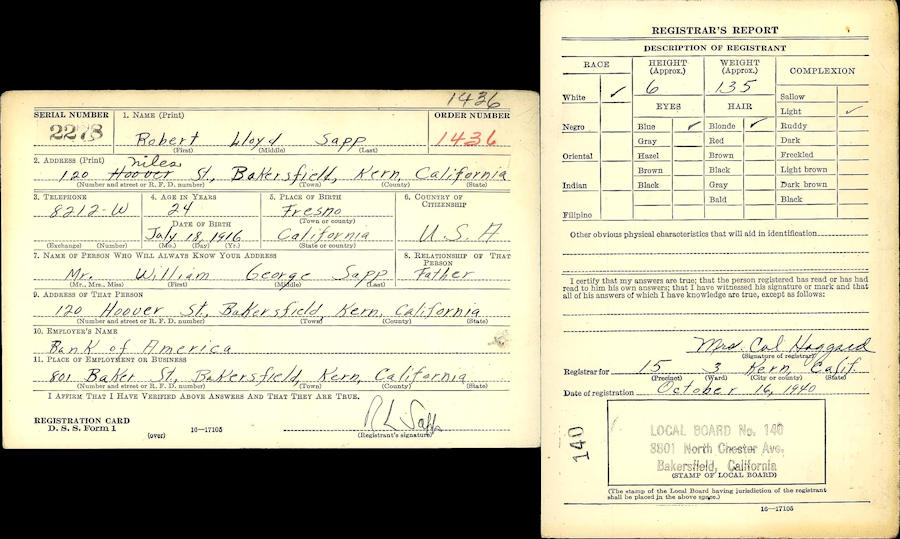 1436
SERIAL NUMBER 1. NAME (Print) ORDER NUMBER
2278 Robert Lloyd Sapp 1436
(First) (Middle) (Last)
2. ADDRESS (Print) Niles
120 Hoover St., Bakersfield, Kern, California
(Number and street or R. F. D. number) (Town) (County) (State)
3. TELEPHONE 4. AGE IN YEARS 5. PLACE OF BIRTH 6. COUNTRY OF CITIZENSHIP
8212-W 24 Fresno
(Town or county)
DATE OF BIRTH
July 18, 1916 California U.S.A
(Exchange) (Number) (Mo.) (Day) (Yr.) (State or country)
7. NAME OF PERSON WHO WILL ALWAYS KNOW YOUR ADDRESS 8. RELATIONSHIP OF THAT PERSON
Mr. William George Sapp Father
(Mr., Mrs., Miss) (First) (Middle) (Last)
9. ADDRESS OF THAT PERSON
120 Hoover St., Bakersfield, Kern, California
(Number and street or R. F. D. number) (Town) (County) (State)
10. EMPLOYER'S NAME
Bank of America
11. PLACE OF EMPLOYMENT OR BUSINESS
801 Baker St., Bakersfield, Kern, California
(Number and street or R. F. D. number) (Town) (County) (State)
I AFFIRM THAT I HAVE VERIFIED ABOVE ANSWERS AND THAT THEY ARE TRUE.
REGISTRATION CARD
D. S. S. Form 1 R L Sapp
(over) 16—17105 (Registrant's signature)
REGISTRAR'S REPORT
DESCRIPTION OF REGISTRANT
RACE HEIGHT (Approx.) WEIGHT (Approx.) COMPLEXION
6 135
White ✓ Sallow
EYES HAIR Light ✓
Negro Blue ✓ Blonde ✓ Ruddy
Gray Red Dark
Oriental Hazel Brown Freckled
Brown Black Light brown
Indian Black Gray Dark brown
Bald Black
Filipino
Other obvious physical characteristics that will aid in identification
I certify that my answers are true; that the person registered has read or has had
read to him his own answers; that I have witnessed his signature or mark and that
all of his answers of which I have knowledge are true, except as follows:
Mrs. Cal Haggard
(Signature of registrar)
Registrar for 15 3 Kern, Calif.
(Precinct) (Ward) (City or county) (State)
Date of registration October 16, 1940
140
LOCAL BOARD No. 140
3801 North Chester Ave.
Bakersfield, California
(STAMP OF LOCAL BOARD)
(The stamp of the Local Board having jurisdiction of the registrant
shall be placed in the above space.)
16—17105